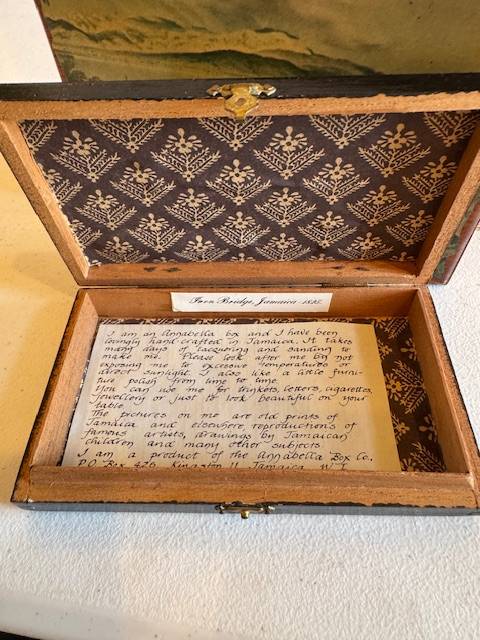 Iron Bridge, Jamaica 1835.
I am an Annabella box and I have been
lovingly hand-crafted in Jamaica. It takes
many days of lacquering and sanding to
make me. Please look after me by not
exposing me to excessive temperatures or
direct sunlight. I also like a little furni-
ture polish from time to time.
You can use me for trinkets, letters, cigarettes,
jewellery or just to look beautiful on your
table.
The pictures on me are old prints of
Jamaica and elsewhere, reproductions of
famous artists, drawings by Jamaican
children and many other subjects.
I am a product of the Annabella Box Co.
P.O. Box 426, Kingston 11, Jamaica, W.I.